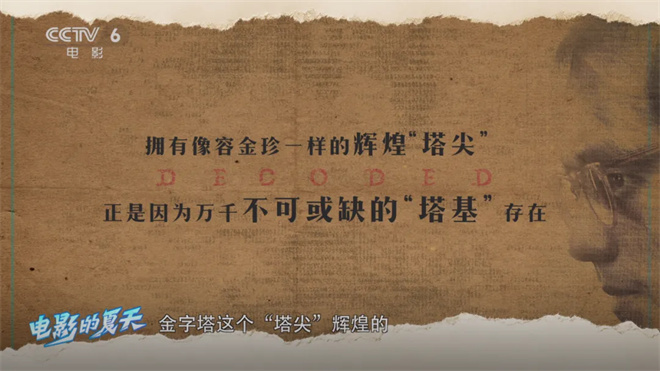 CCTV 6
电影
拥有像容金珍一样的辉煌“塔尖”
DECODED
正是因为万千不可或缺的“塔基”存在
电影的夏天
金字塔这个“塔尖”辉煌的